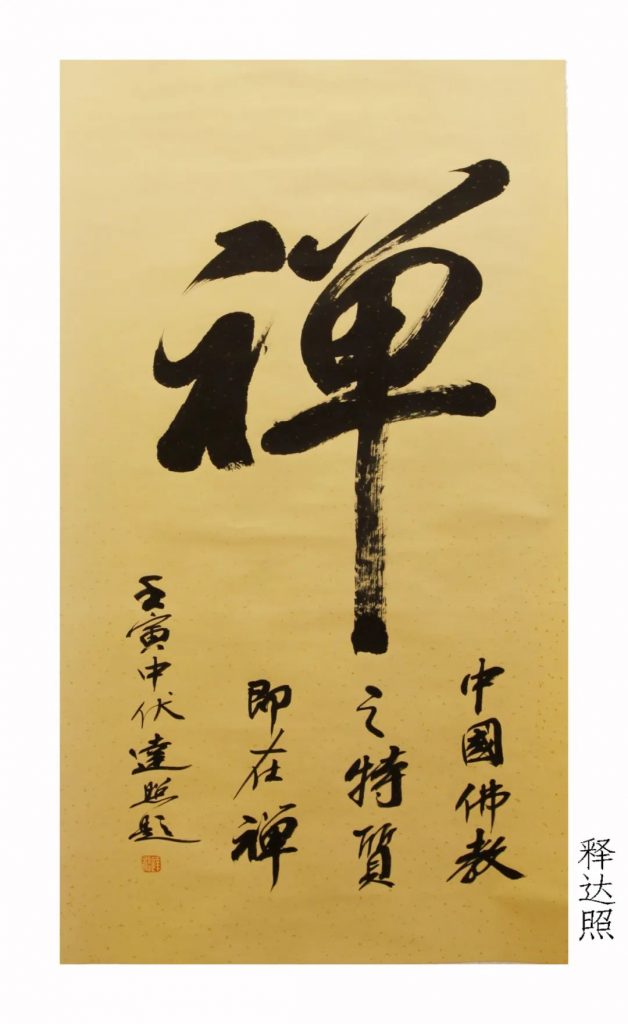 禅
中國佛教
之特質
即在禅
壬寅中伏達照題
释达照